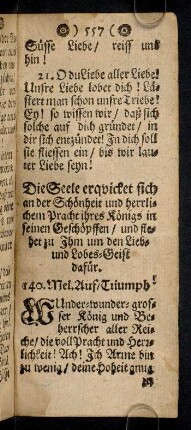 ) 557 (
Süsse Liebe / reiß uns
hin !
21. O du Liebe aller Liebe!
Unsre Liebe lobet dich! Lä-
stert man schon unsre Triebe!
Ey! so wissen wir / daß sich
solche auf dich gründet / in
dir sich entzündet! In dich soll
sie fliessen ein / bis wir lau-
ter Liebe seyn!
Die Seele erqvicket sich
an der Schönheit und herrli-
chem Pracht ihres Königs in
seinen Geschöpffen / und fle-
het zu Ihm um den Lieb-
und Lobes-Geist
dafür.
140. Mel. Auf / Triumph!
WUnder-wunder-gros-
ser König und Be-
herrscher aller Rei-
che / die voll Pracht und Herr-
lichkeit! Ach! Ich Arme bin
zu wenig / deine Hoheit gnug